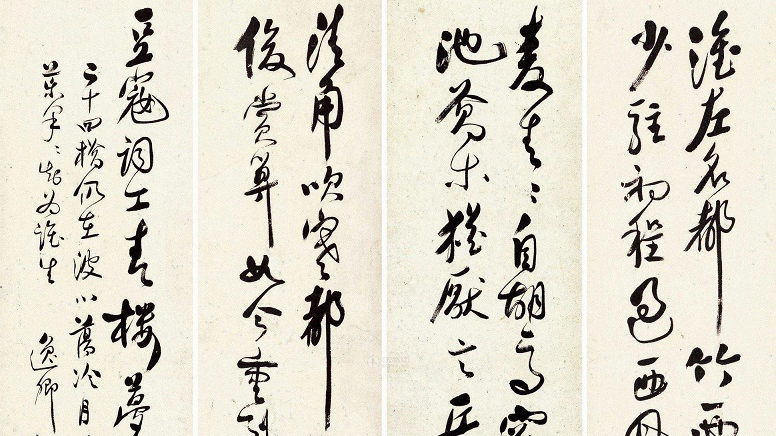 淮左名都竹西
少駐初程過西風
麥青青自胡馬窺
池喬木猶厭言兵
清角吹寒都
俊賞算如今重到
豆蔻詞工青樓夢
二十四橋仍在波心蕩冷月
藥年年知為誰生
逸卿